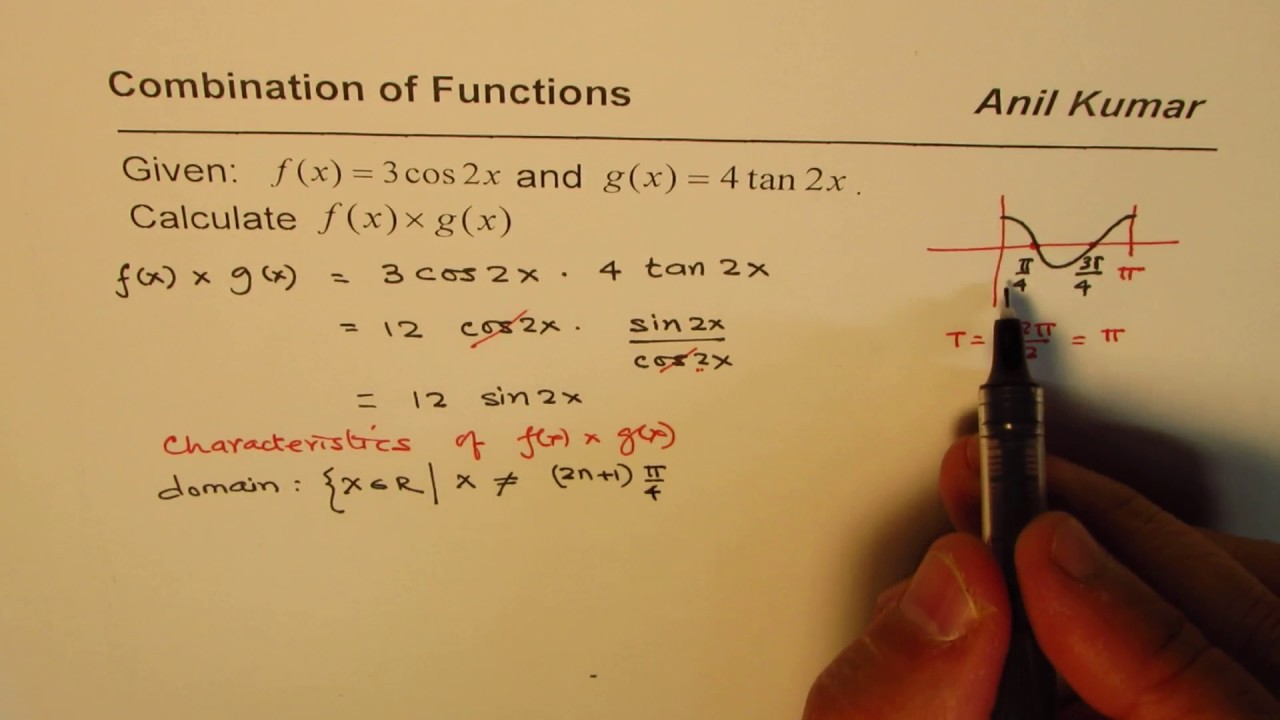 Combination of Functions
Anil Kumar
Given: f(x) = 3 cos 2x and g(x) = 4 tan 2x .
Calculate f(x) × g(x)
f(x) × g(x) = 3 cos 2x · 4 tan 2x
= 12 cos 2x · sin 2x / cos 2x
= 12 sin 2x
Characteristics of f(x) × g(x)
domain : {x ∈ R | x ≠ (2n+1) π/4
π/4 3π/4 π
T = 2π/2 = π